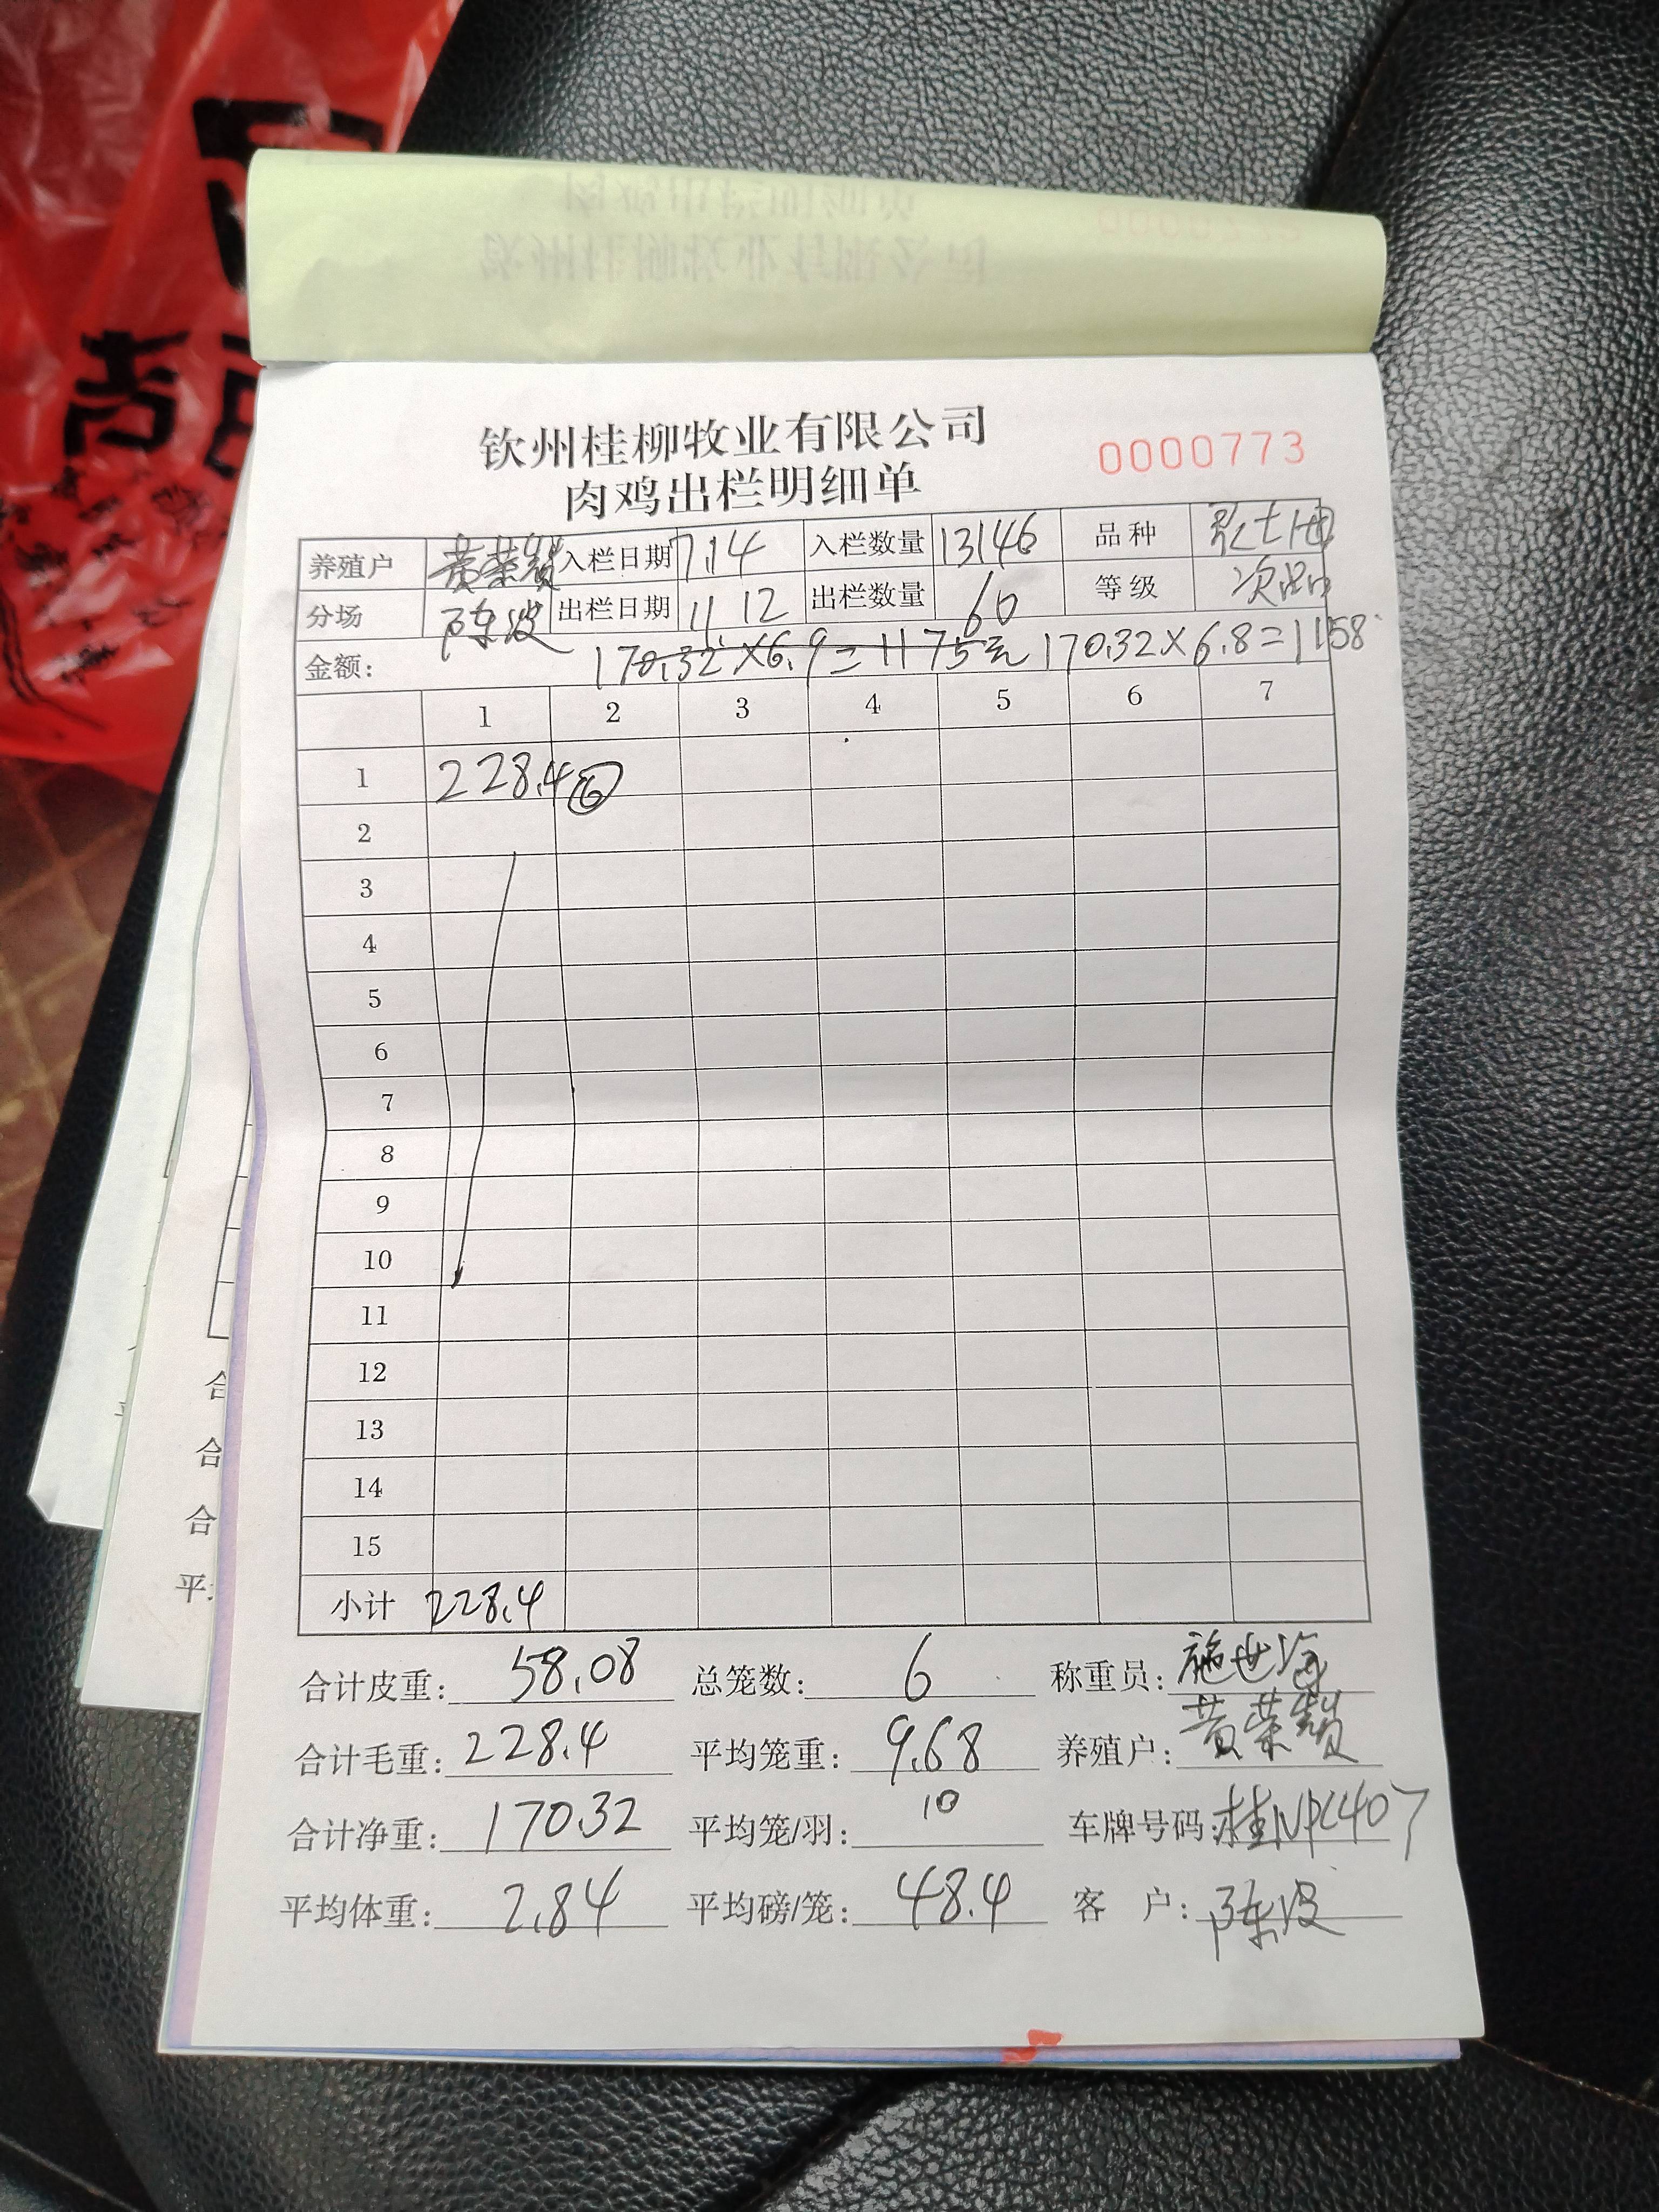 钦州桂柳牧业有限公司
0000773
肉鸡出栏明细单
养殖户 黄荣赞 入栏日期 7.14 入栏数量 13146 品种
分场 陈波 出栏日期 11.12 出栏数量 60 等级 次品
金额: 170.32×6.9=1175元 170.32×6.8=1158
1 2 3 4 5 6 7
1 228.4 ⑥
2
3
4
5
6
7
8
9
10
11
12
13
14
15
小计 228.4
合计皮重: 58.08 总笼数: 6 称重员: 施世海
合计毛重: 228.4 平均笼重: 9.68 养殖户: 黄荣赞
合计净重: 170.32 平均笼/羽: 10 车牌号码:
平均体重: 2.84 平均磅/笼: 48.4 客户: 陈波
合
合
合
平